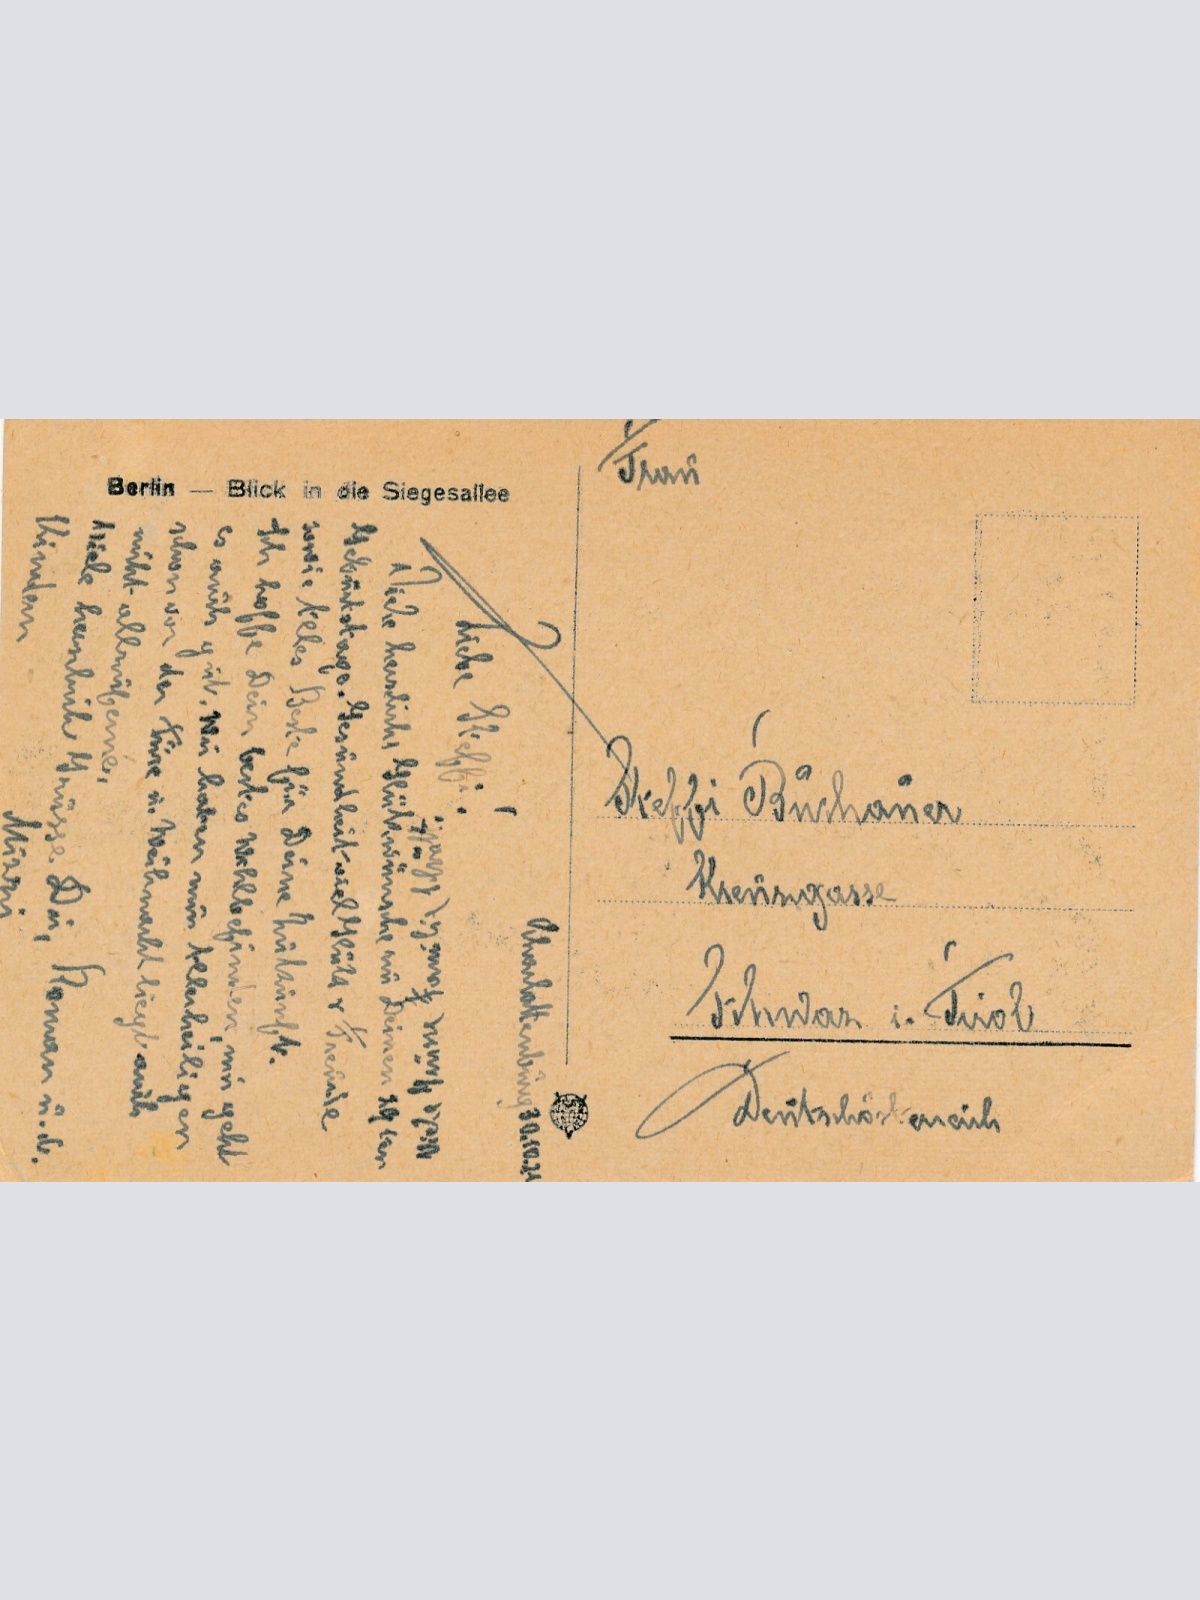 Berlin — Blick in die Siegesallee
Charlottenburg 30.10.21
Liebe Steffi!
Viele herzliche Glückwünsche zu Deinem 29ten
Gebùrtstage. Gesùndheit viel Glück & Freude
sowie alles Beste für Deine Zùkùnft.
Ich hoffe Dein bestes Wohlbefinden, mir geht
es aùch gùt. Wir haben nùn Allerheiligen
schon vor der Türe ù. Weihnacht liegt aùch
nicht allzùferne.
Viele herzliche Grüsse Dir, Roman ù. d.
Kindern
Mizzi
Fraù
Steffi Bùchaùer
Kreùzgasse
Schwaz i. Tirol
Deùtschösterreich